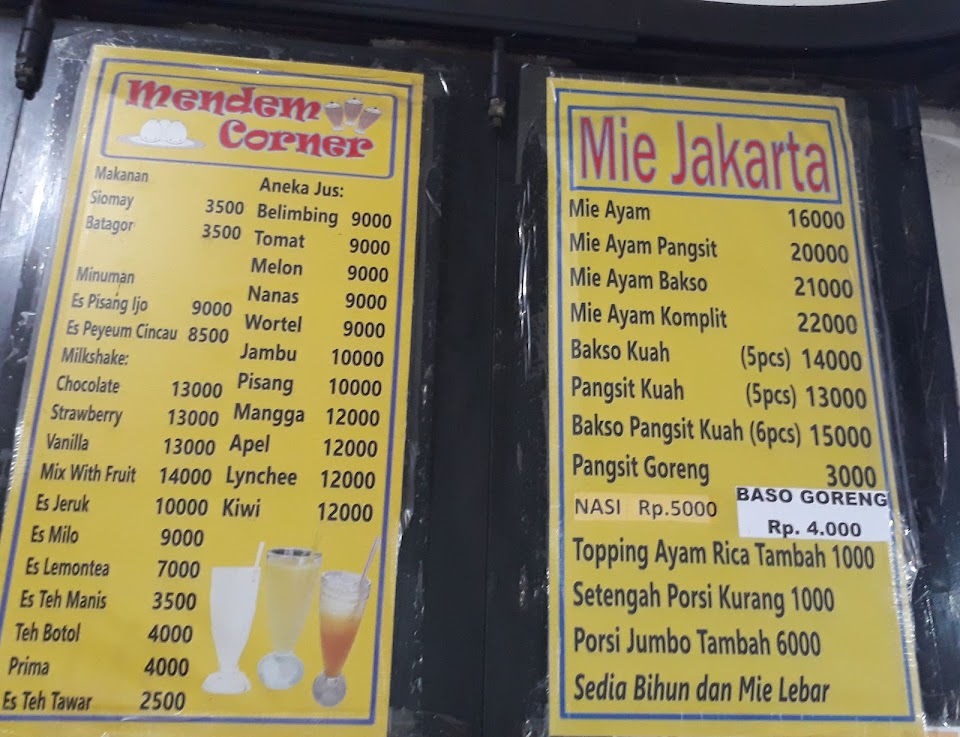 Mendem
Corner
Makanan
Siomay 3500
Batagor 3500
Minuman
Es Pisang Ijo 9000
Es Peyeum Cincau 8500
Milkshake:
Chocolate 13000
Strawberry 13000
Vanilla 13000
Mix With Fruit 14000
Es Jeruk 10000
Es Milo 9000
Es Lemontea 7000
Es Teh Manis 3500
Teh Botol 4000
Prima 4000
Es Teh Tawar 2500
Aneka Jus:
Belimbing 9000
Tomat 9000
Melon 9000
Nanas 9000
Wortel 9000
Jambu 10000
Pisang 10000
Mangga 12000
Apel 12000
Lynchee 12000
Kiwi 12000
Mie Jakarta
Mie Ayam 16000
Mie Ayam Pangsit 20000
Mie Ayam Bakso 21000
Mie Ayam Komplit 22000
Bakso Kuah (5pcs) 14000
Pangsit Kuah (5pcs) 13000
Bakso Pangsit Kuah (6pcs) 15000
Pangsit Goreng 3000
NASI Rp.5000
BASO GORENG
Rp. 4.000
Topping Ayam Rica Tambah 1000
Setengah Porsi Kurang 1000
Porsi Jumbo Tambah 6000
Sedia Bihun dan Mie Lebar